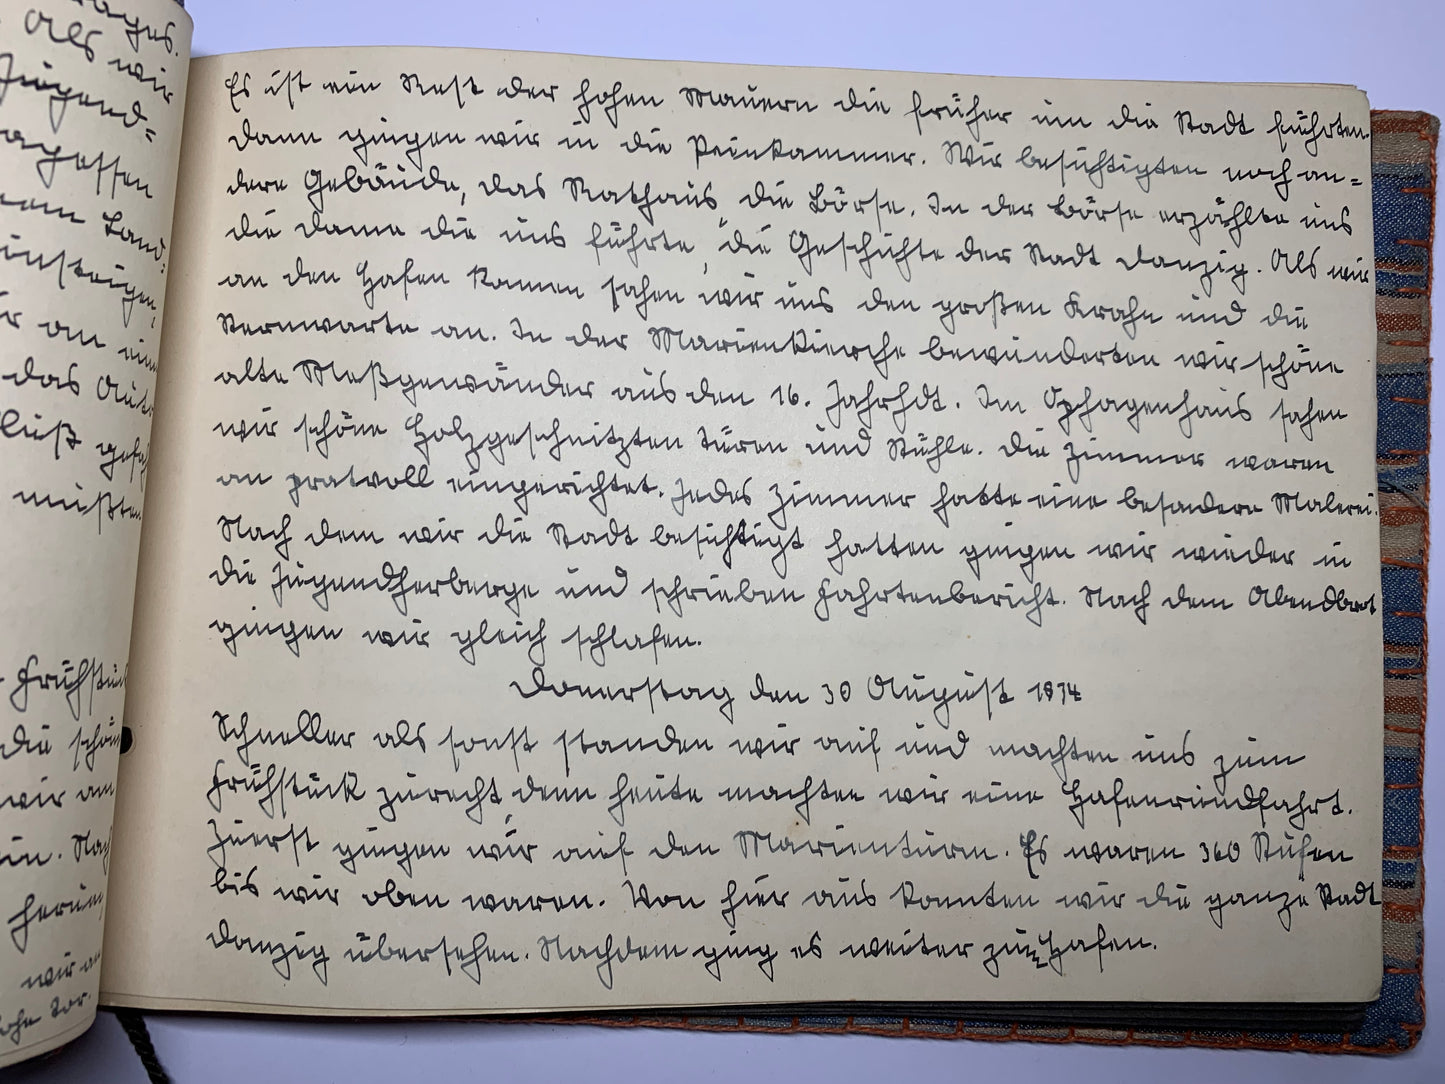 ages.
Als wir
Jugend=
agessen
Land=
einsteigen,
r an eine
das Auto
luß gefah
müßten
Frühstück
die schön
wir am
ein. Nach
herum
wir an
hohe Tor.
Es ist ein Rest der hohen Mauern die früher um die Stadt führten.
Dann gingen wir in die Peinkammer. Wir besichtigten noch an=
dere Gebäude, das Rathaus, die Börse. In der Börse erzählte uns
die Dame die uns führte, die Geschichte der Stadt Danzig. Als wir
an den Hafen kamen sahen wir uns den großen Krahn und die
Sternwarte an. In der Marienkierche bewunderten wir schöne
alte Meßgewänder aus den 16. Jahrhdt. Im Ophagenhaus sahen
wir schöne Holzgeschnitzten Türen und Stühle. Die Zimmer waren
an pratvoll eingerichtet. Jedes Zimmer hatte eine besondere Malerei.
Nach dem wir die Stadt besichtigt hatten gingen wir wieder in
die Jugendherberge und schrieben Fahrtenbericht. Nach dem Abendbrot
gingen wir gleich schlafen.
Donerstag den 30 August 1934
Schneller als sonst standen wir auf und machten uns zum
Frühstück zurecht denn heute machten wir eine Hafenrundfahrt.
Zuerst gingen wir auf den Marienturm. Es waren 360 Stufen
bis wir oben waren. Von hier aus konnten wir die ganze Stadt
Danzig übersehen. Nachdem ging es weiter zum Hafen.